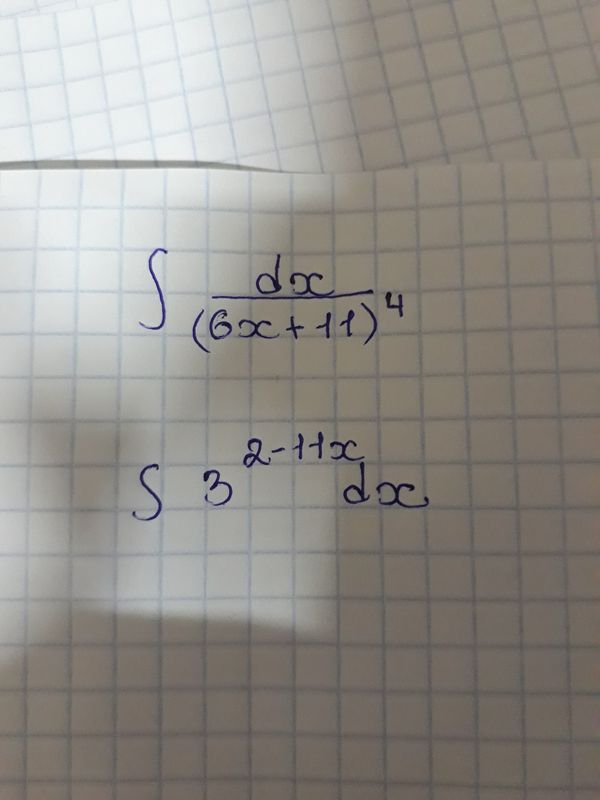 ∫ dx
(6x+11)⁴
∫ 3^{2-11x} dx